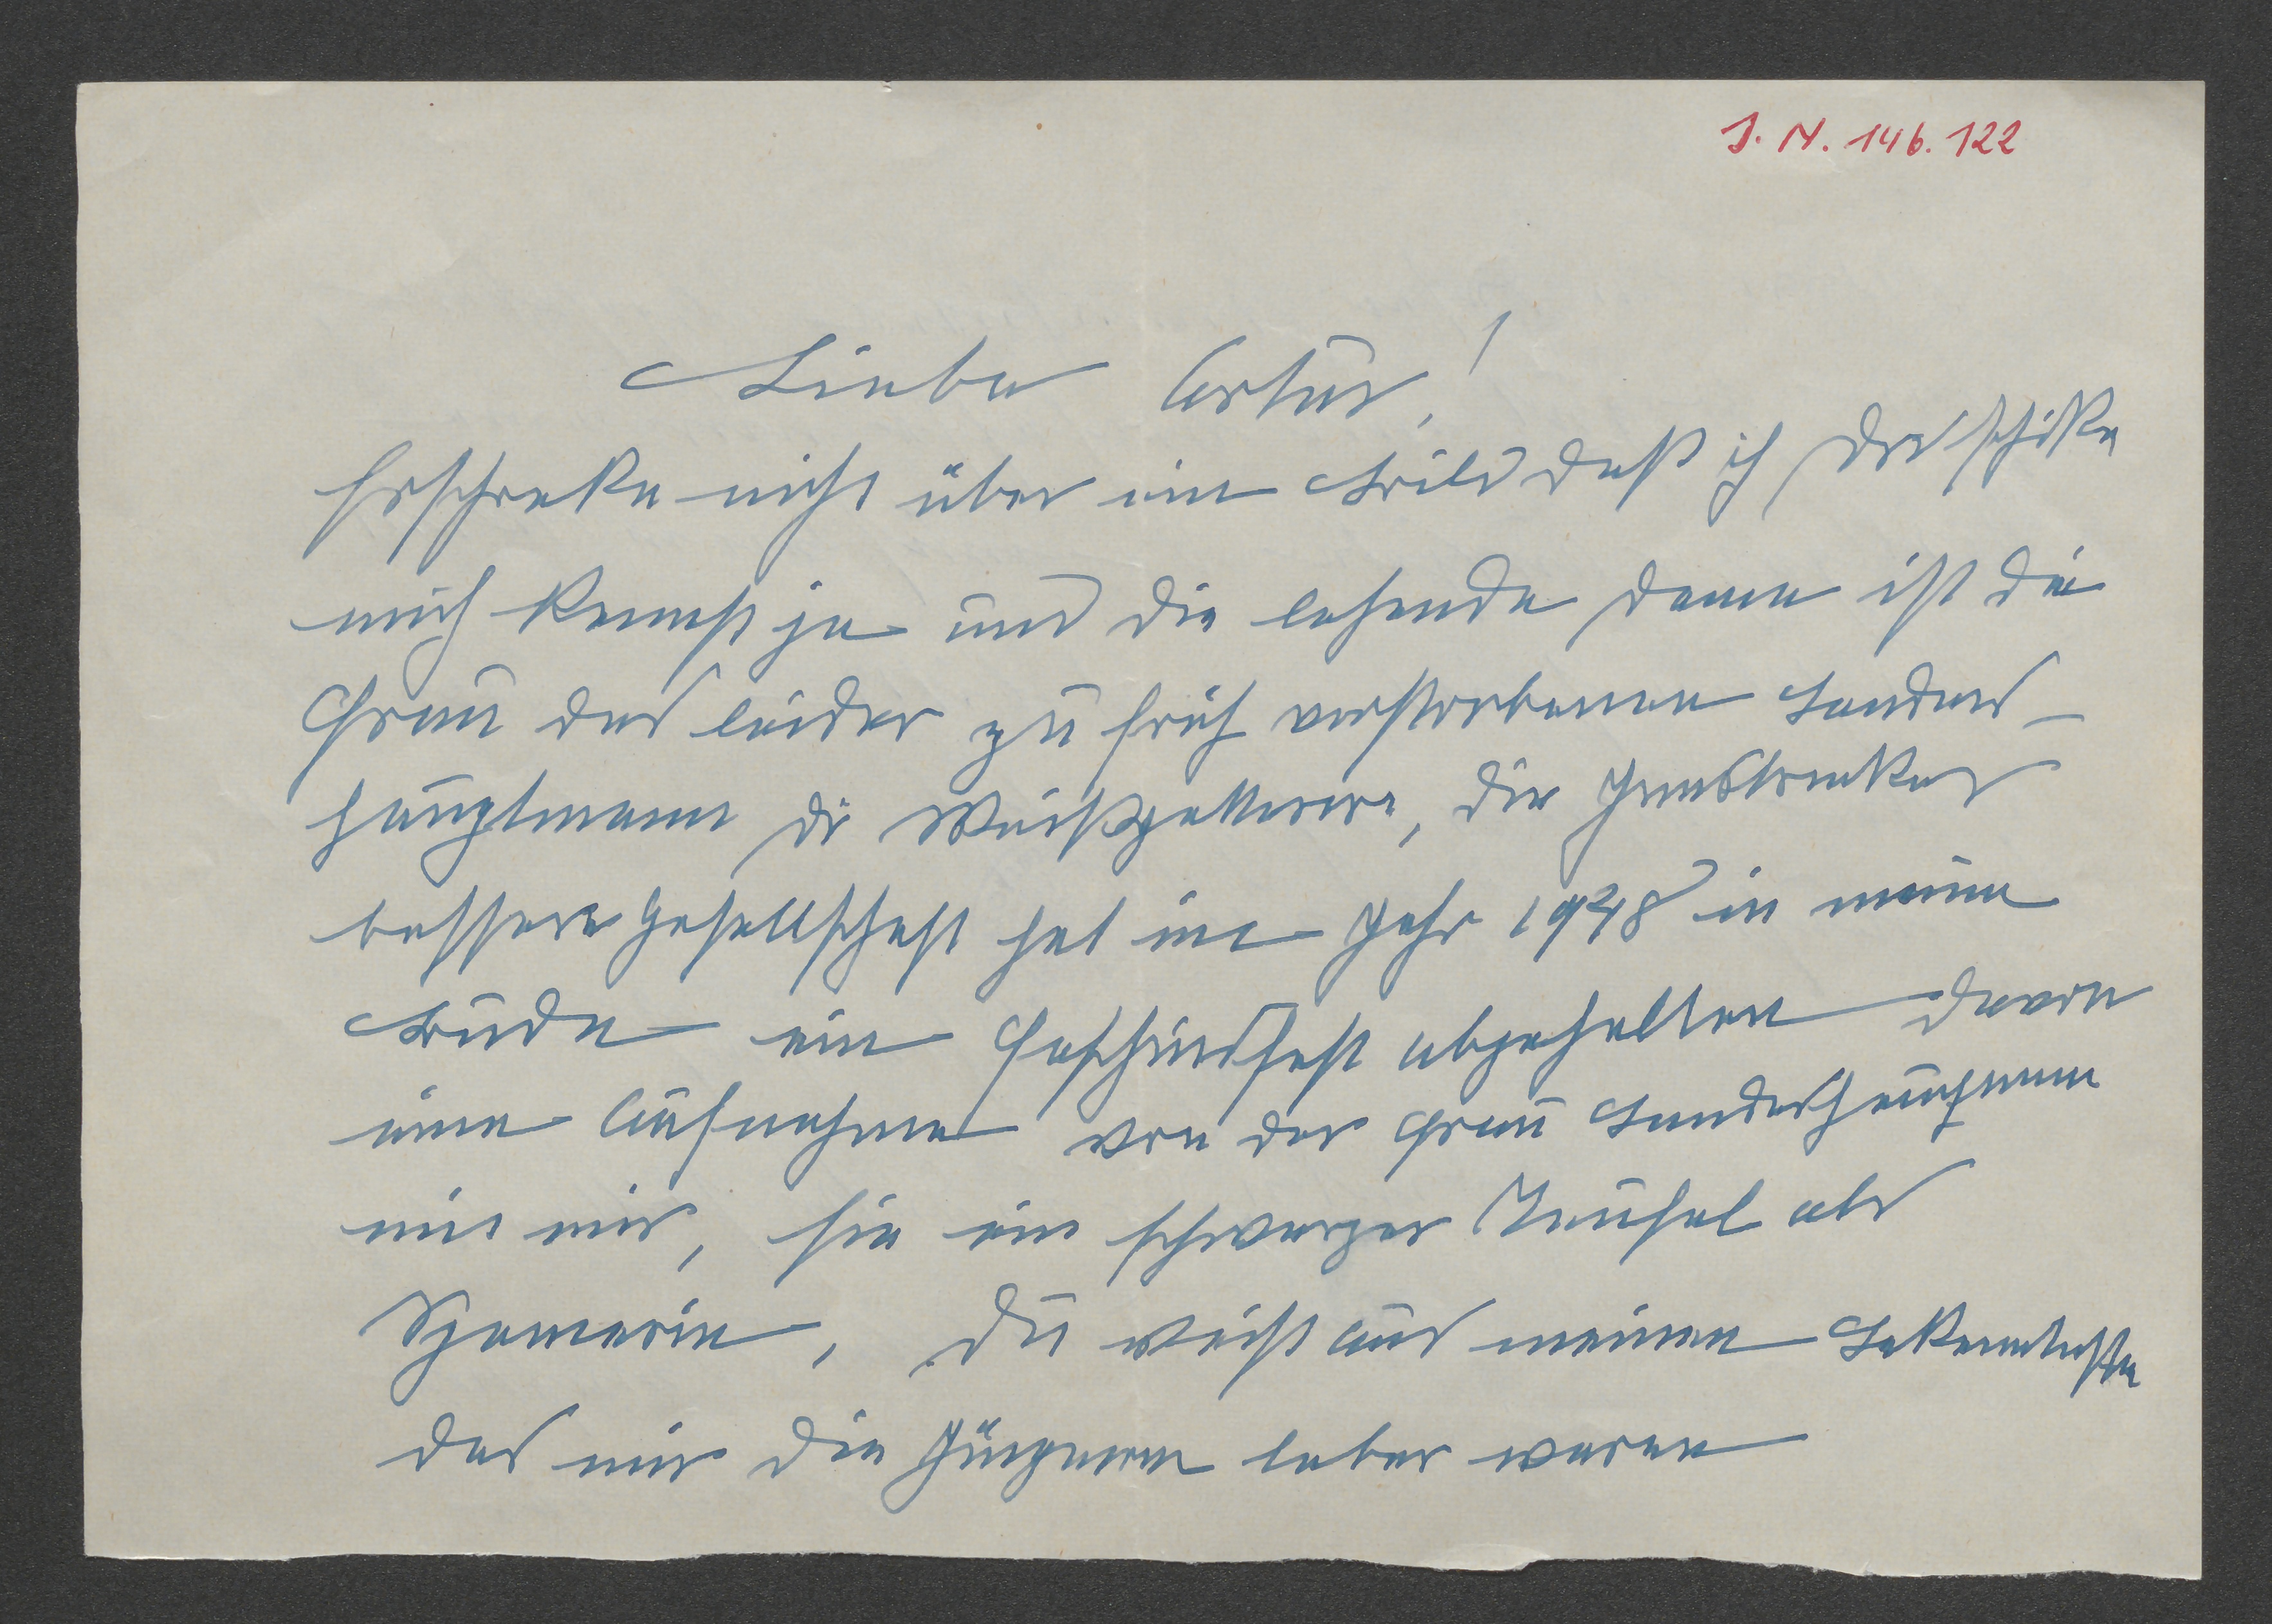 J. N. 146.122
Lieber Artur!
Erschreke nicht über ein Bild daß ich Dir schike
mich kennst ja und die lesende Dame ist die
Frau des leider zu früh verstorbenen Landes-
hauptmann Dr , die Innsbruker
bessere Gesellschaft hat im Jahr 1948 in meine
Bude ein Faschinsfest abgehalten davon
eine Aufnahme von der Frau Landeshauptmann
mit mir, sie ein schwarzer Teufel als
Spanierin, Du weist aus meinen Bekenntnisse
das mir die lieber waren